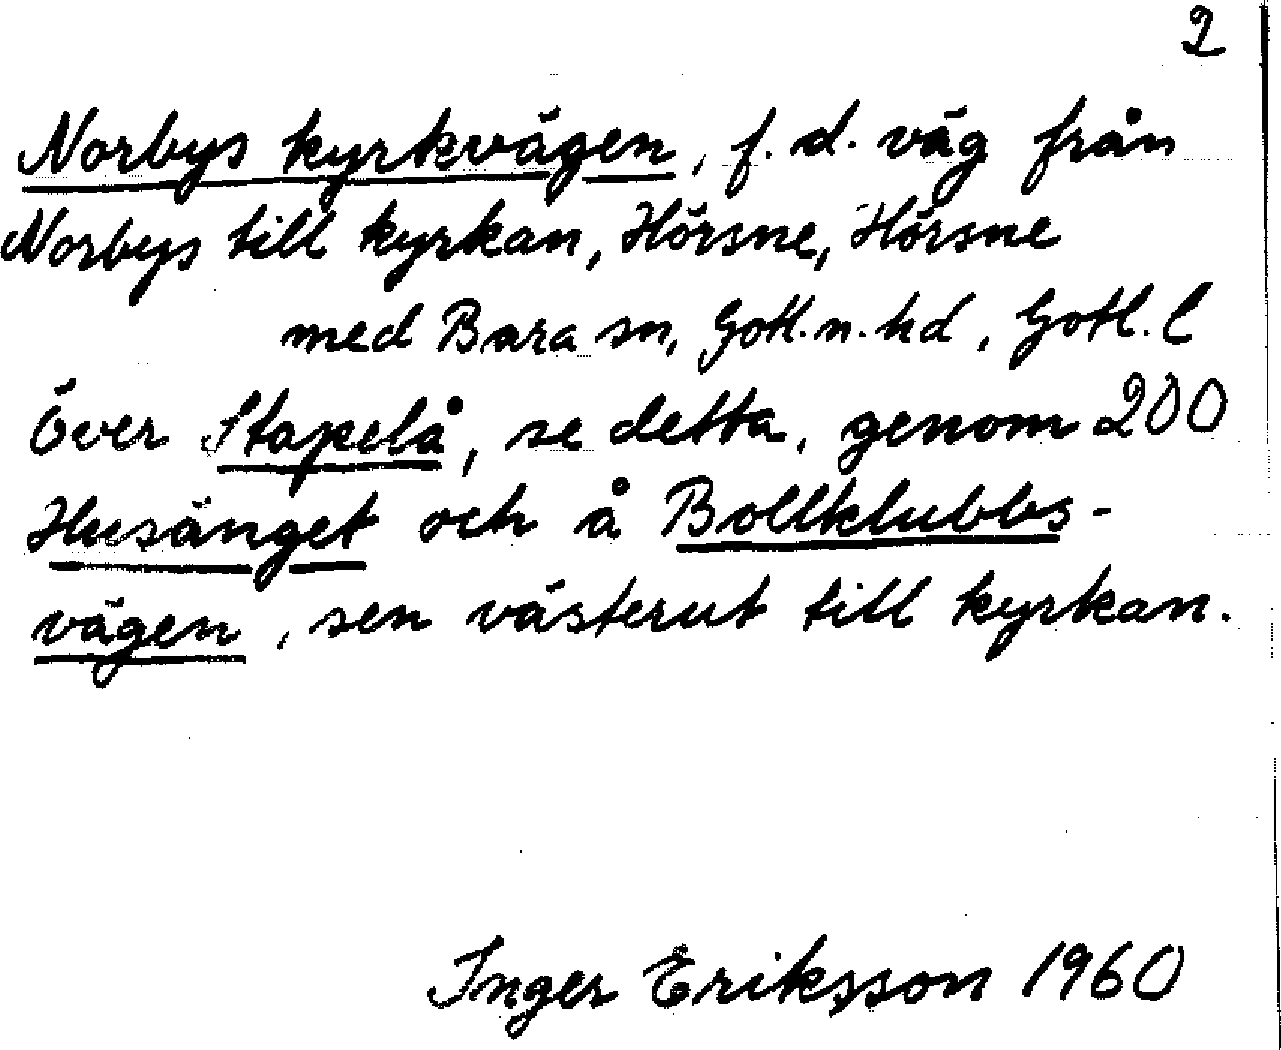 2
Norbys kyrkvägen, f. d. väg från
Norbys till kyrkan, Hörsne, Hörsne
med Bara sn, Gotl. n. hd, Gotl. l
Över Stapelå, se detta, genom 200
Husänget och å Bollklubbs-
vägen, sen västerut till kyrkan.
Inger Eriksson 1960